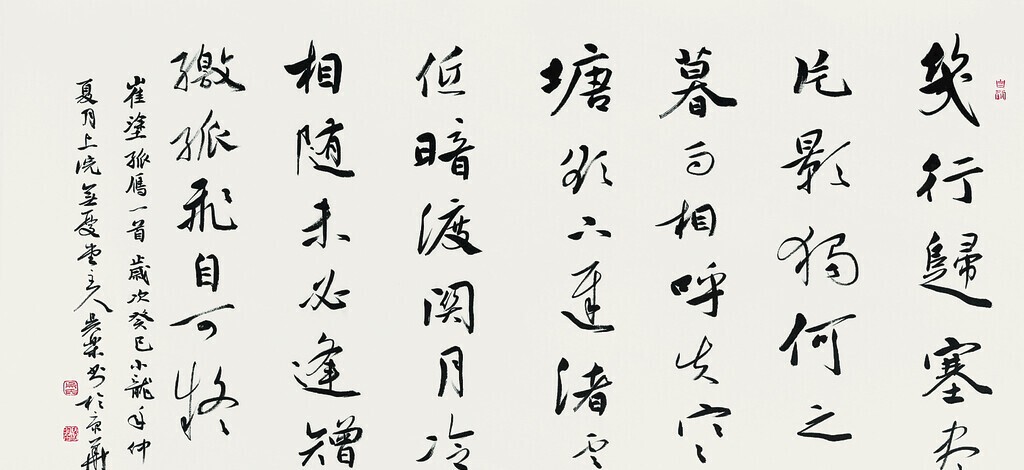 幾行歸塞盡
片影獨何之
暮雨相呼失寒
塘欲下遲渚雲
低暗渡関月冷
相随未必逢矰
繳孤飛自可疑
崔塗孤鴈一首歲次癸巳小龍年仲
夏月上浣無憂堂主人書於京華